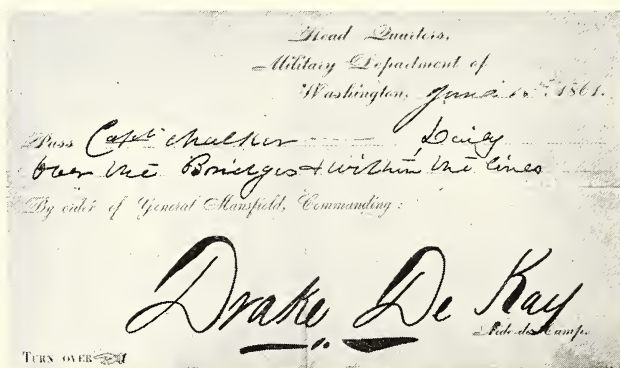 Head Quarters,
Military Department of
Washington, June 1861.
Pass Capt Daily
over the Bridges & within the lines
By order of General Mansfield, Commanding:
Drake De Kay
Aide-de-Camp.
TURN OVER